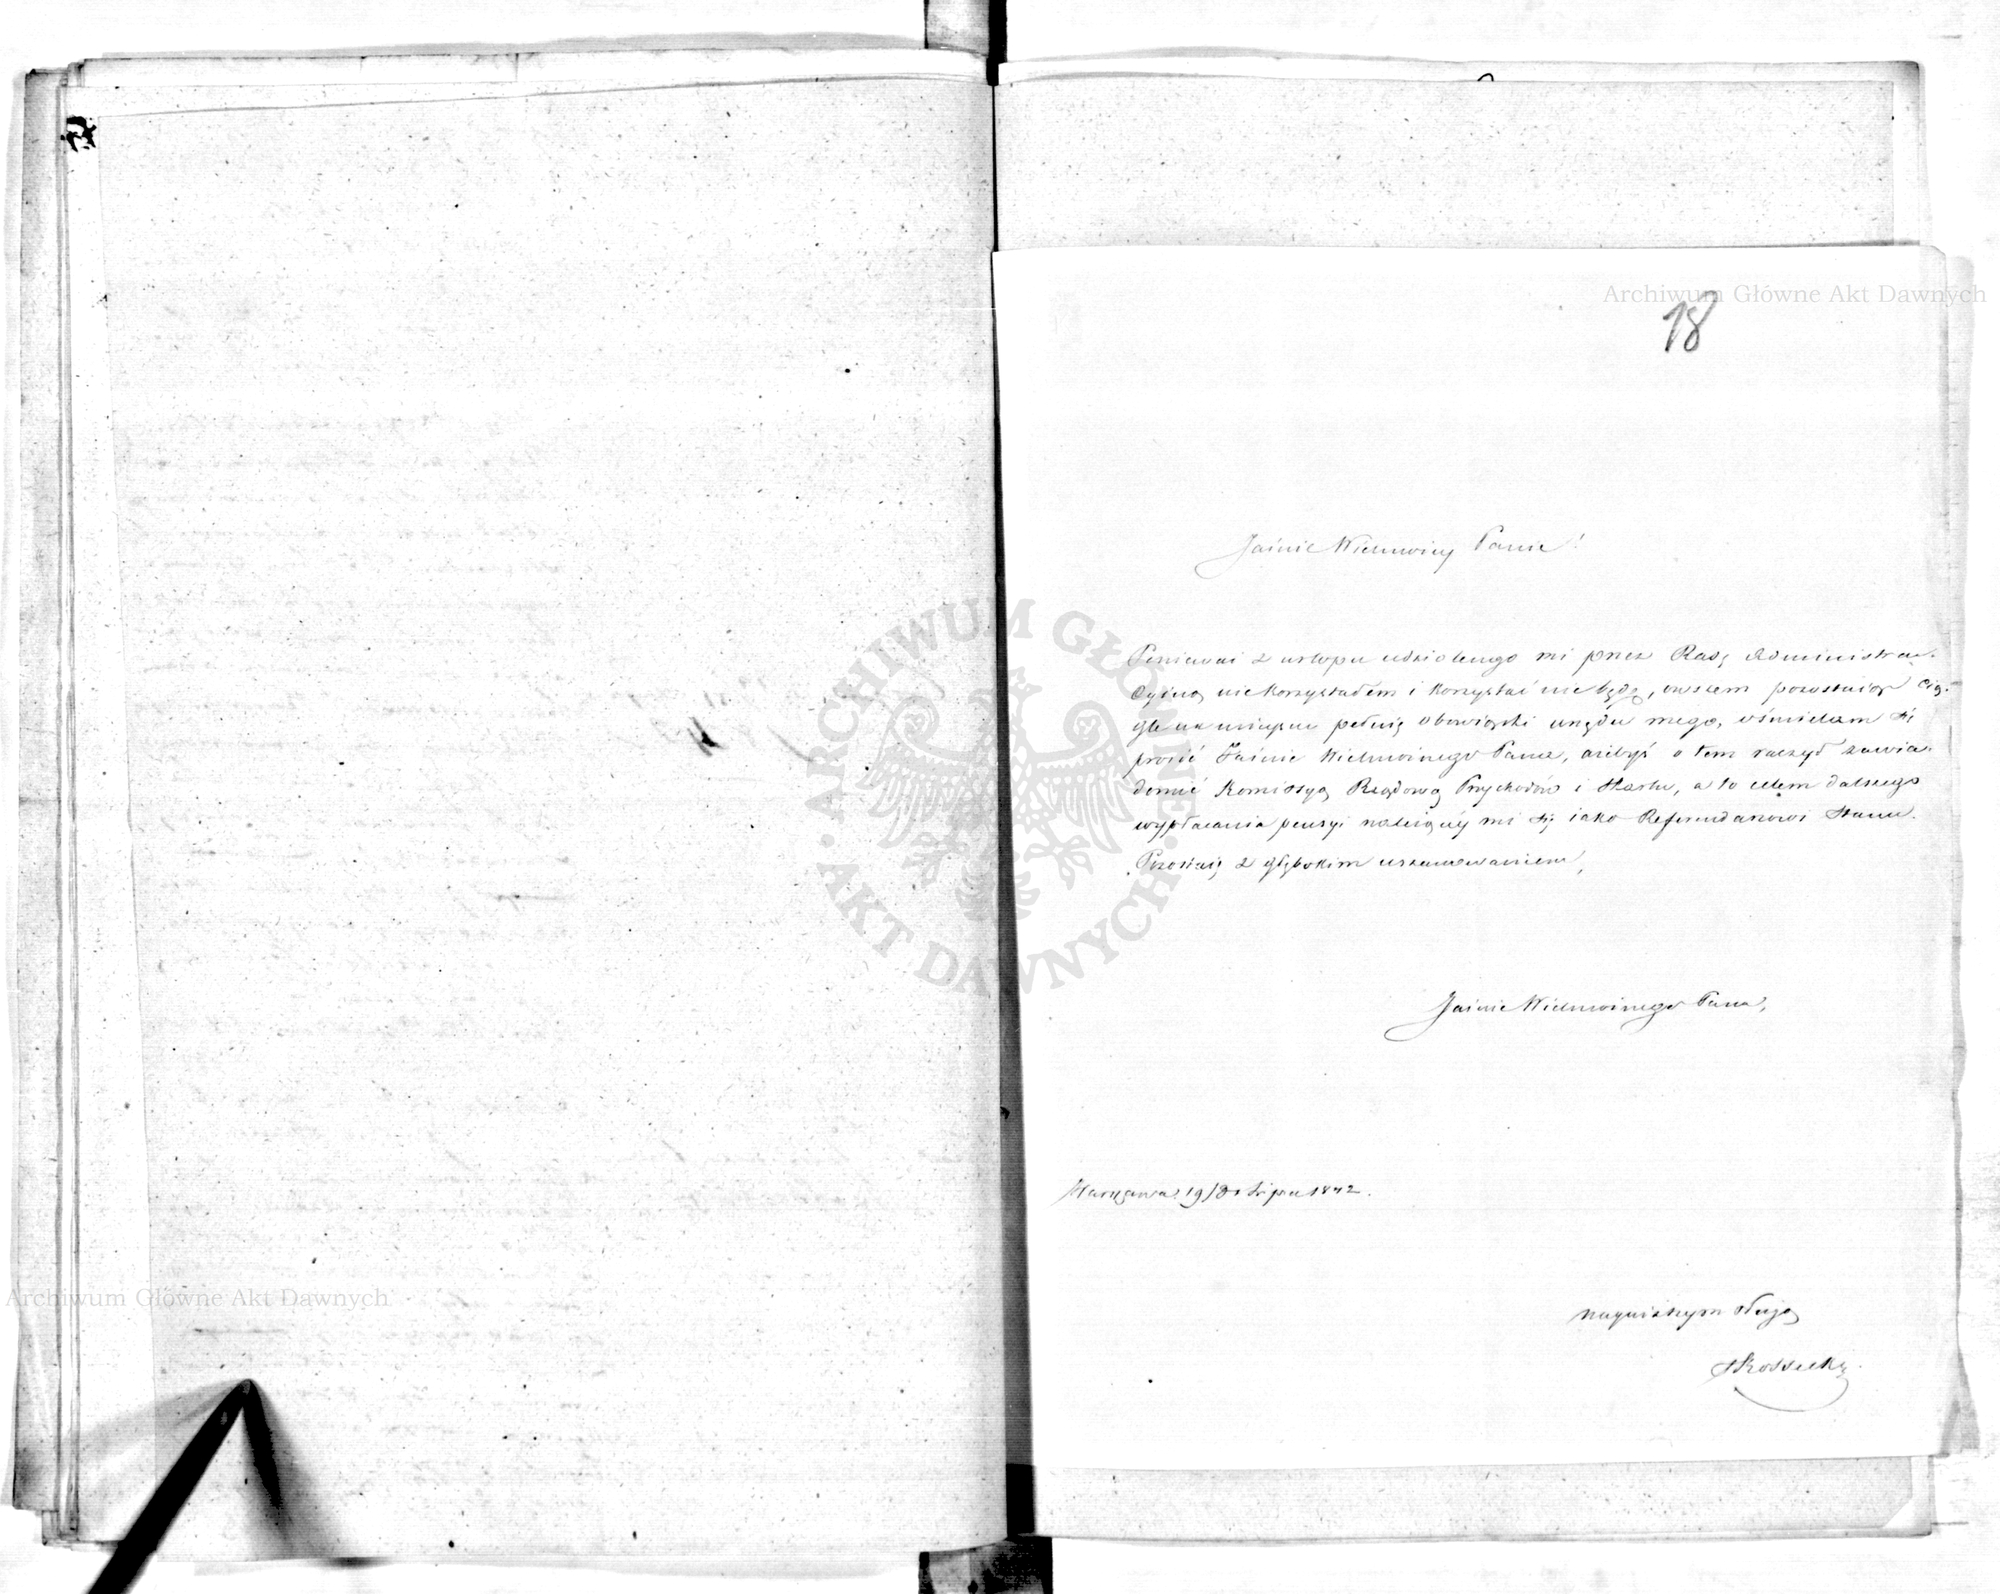 Archiwum Główne Akt Dawnych
18
Jaśnie Wielmożny Panie!
Ponieważ z urlopu udzielonego mi przez Radę Administra-
cyjną nie korzystałem i korzystać nie będę, owszem pozostając cią-
gle na miejscu pełnię obowiązki urzędu mego, ośmielam się
prosić Jaśnie Wielmożnego Pana, ażebyś o tem raczył zawia-
domić Komissyą Rządową Przychodów i Skarbu, a to celem dalszego
wypłacania pensyi należącéy mi się iako Referendarzowi Stanu.
Pozostaię z głębokim uszanowaniem,
ARCHIWUM GŁÓWNE AKT DAWNYCH
Jaśnie Wielmożnego Pana,
Warszawa 19/31 Lipca 1842.
Archiwum Główne Akt Dawnych
nayniższym sługą